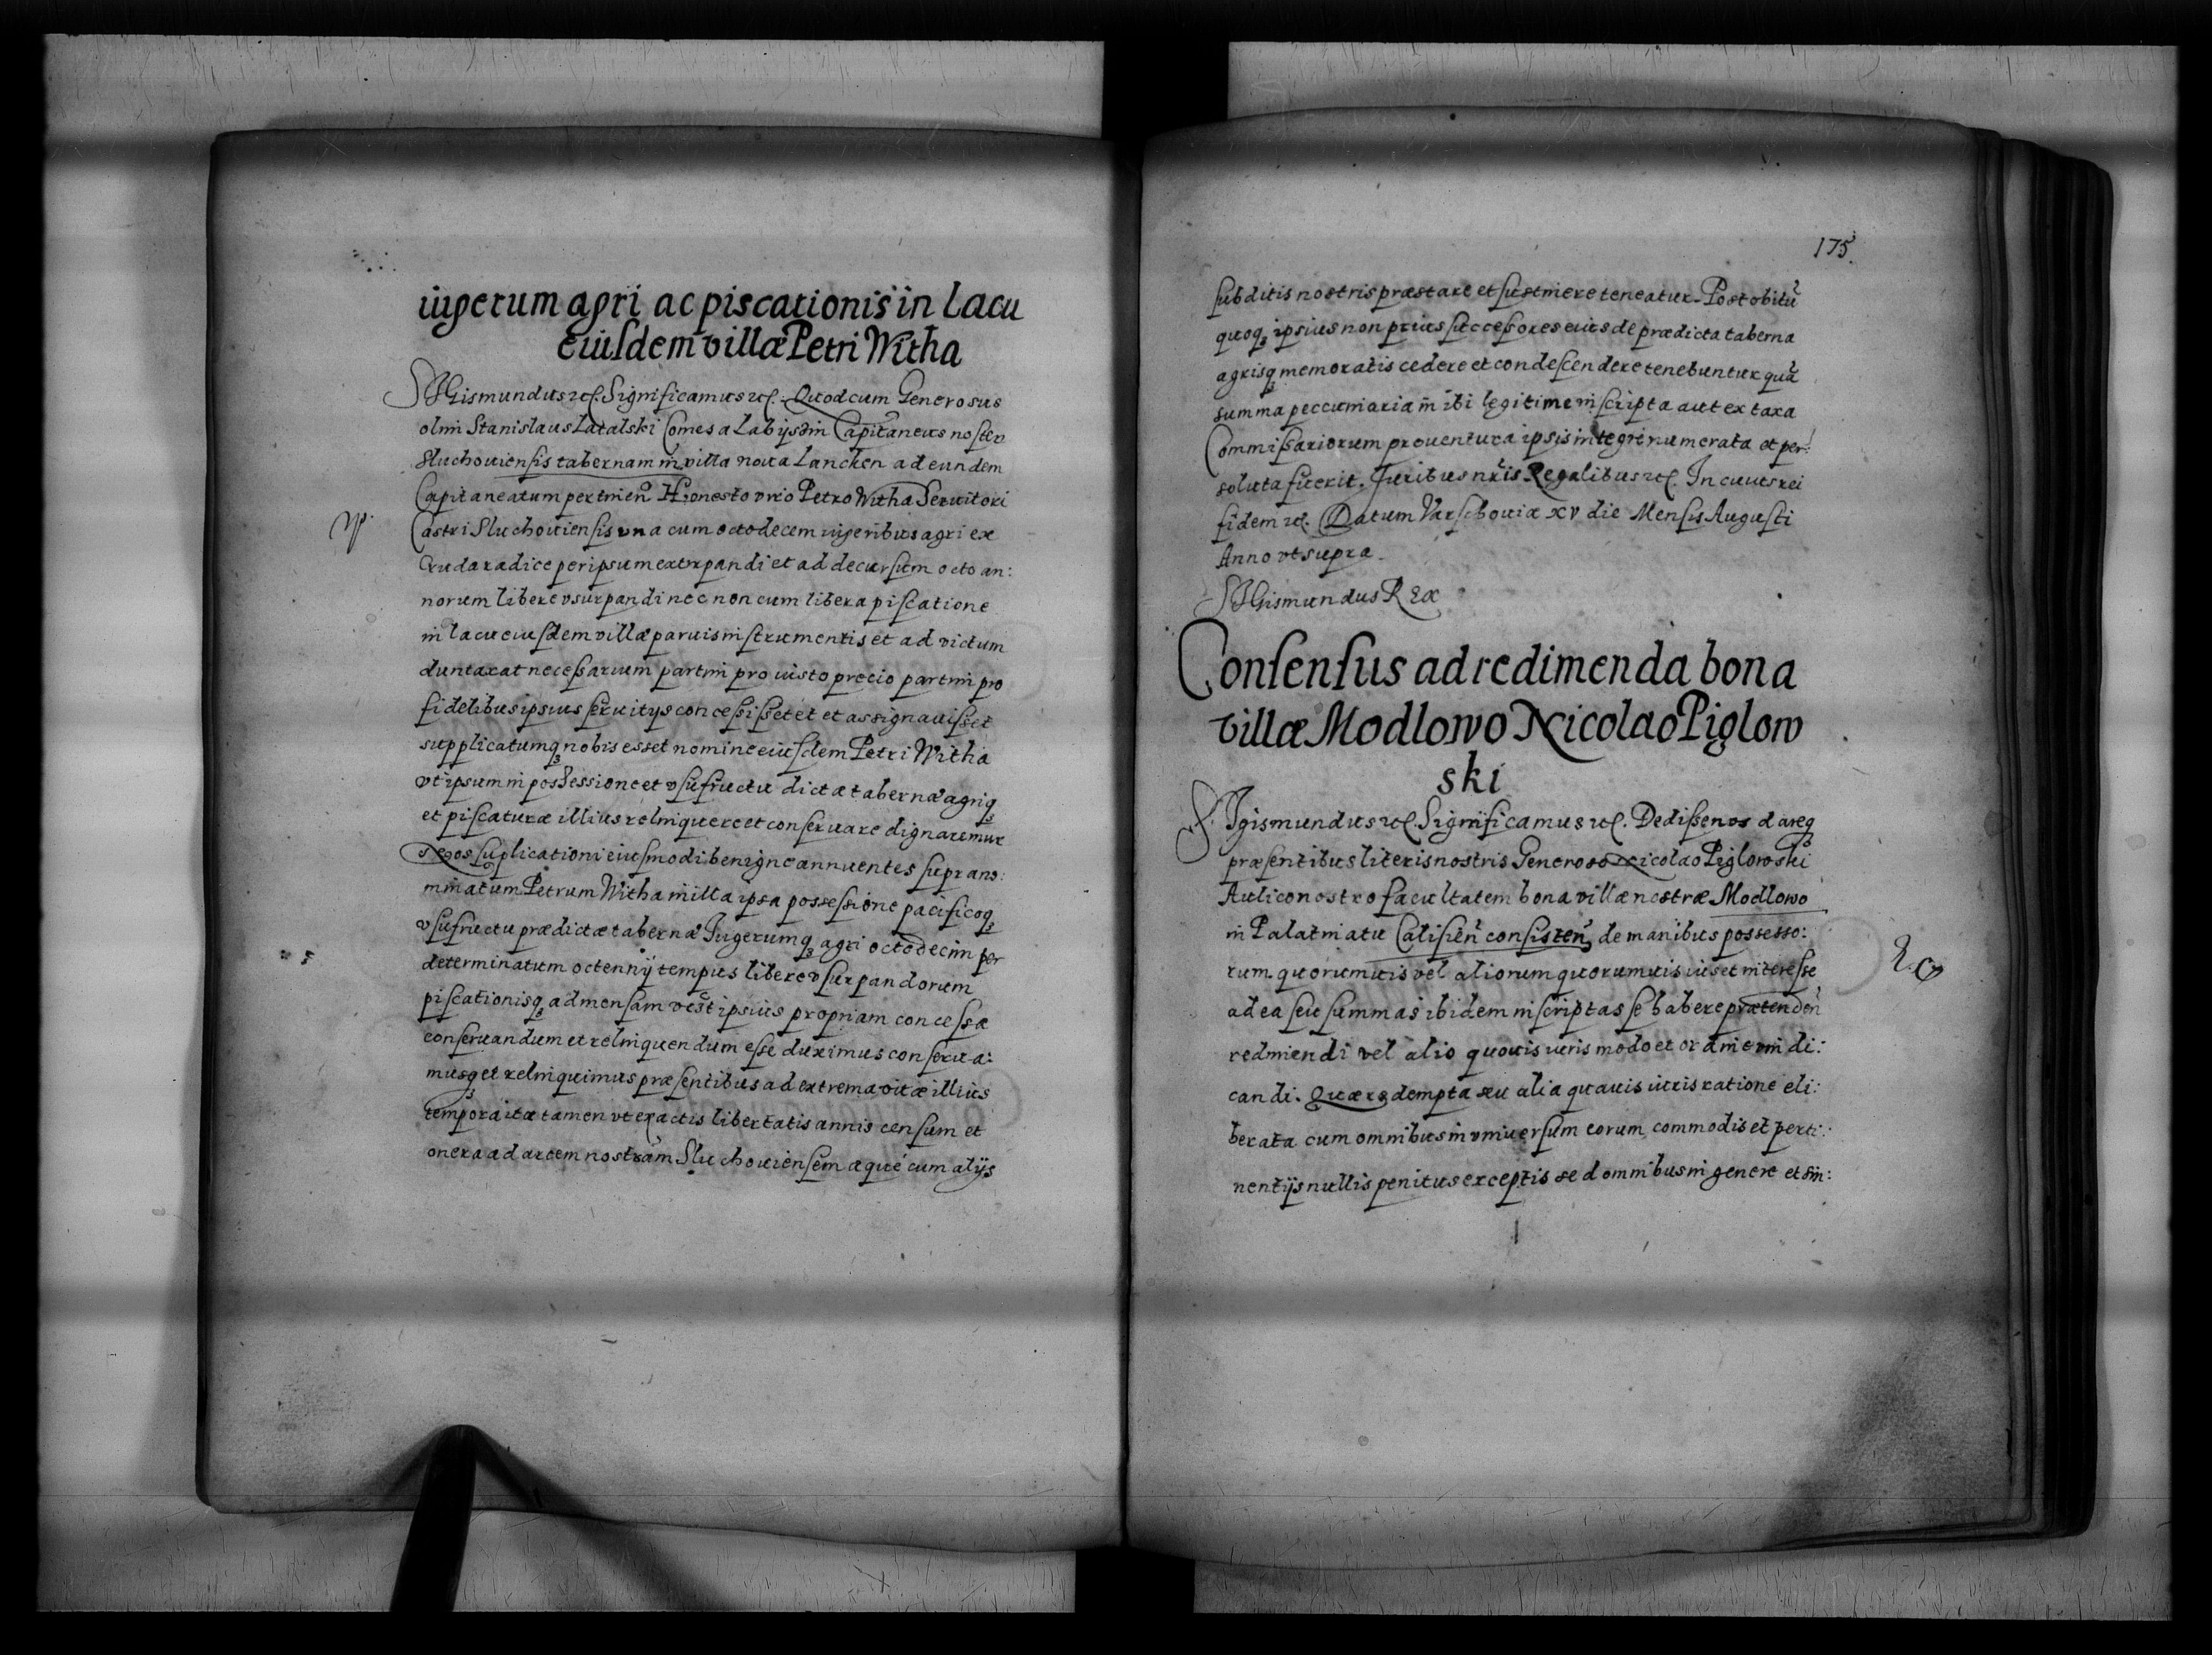 iugerum agri ac piscationis in Lacu
eiusdem villæ Petri Witha
SIGismundus etc. Significamus etc. Quod cum Generosus
olim Stanislaus Latalski Comes a Labijschin Capitaneus noster
Sluchouiensis tabernam in villa noua Lancken ad eundem
Capitaneatum pertinen̄ Honesto viro Petro Witha Seruitori
W.
Castri Sluchouiensis vna cum octodecem iugeribus agri ex
cruda radice per ipsum extirpandi et ad decursum octo an:
norum libere vsurpandi nec non cum libera piscatione
in lacu eiusdem villæ paruis instrumentis et ad victum
duntaxat necessarium partim pro iusto precio partim pro
fidelibus ipsius seruitijs concessisset et et assignauisset
supplicatumq nobis esset nomine eiusdem Petri Witha
vt ipsum in possessione et vsufructu dictæ tabernæ agriq
et piscaturæ illius relinquere et conseruare dignaremur
Nos suplicationi eiusmodi benigne annuentes suprano:
minatum Petrum Witha in illa ipsa possessione pacificoq
vsufructu prædictæ tabernæ Iugerumq agri octodecim per
determinatum octennij tempus libere vsurpandorum
piscationisq ad mensam vt est ipsius propriam concessæ
conseruandum et relinquendum esse duximus conserua:
musq et relinquimus præsentibus ad extrema vitæ illius
tempora ita tamen vt exactis libertatis annis censum et
onera ad arcem nostram Sluchouiensem æque cum alijs
175.
subditis nostris præstare et sustinere teneatur. Post obitū
quoq ipsius non prius successores eius de prædicta taberna
agrisq memoratis cedere et condescendere tenebuntur quā
summa peccuniaria in ibi legitime inscripta aut ex taxa
Commissariorum prouentura ipsis integre numerata et per:
soluta fuerit. Iuribus nr̄is Regalibus etc. In cuius rei
fidem etc. Datum Varschouiæ xv die Mensis Augusti
Anno vt supra
SIGismundus REx
Consensus ad redimenda bona
villæ Modlowo Nicolao Piglow
ski
SIgismundus etc. Significamus etc. Dedisse nos dareq
præsentibus literis nostris Generoso Nicolao Piglowski
Aulico nostro facultatem bona villæ nostræ Modlowo
in Palatinatu Calisien̄ consisten̄ de manibus possesso:
rum quorumuis vel aliorum quorumuis ius et interesse
ad ea seu summas ibidem inscriptas se habere prætenden̄
redimiendi vel alio quouis iuris modo et ordine vindi:
candi. Quæ redempta seu alia quauis iuris ratione eli:
berata cum omnibus in vniuersum eorum commodis et perti:
nentijs nullis penitus exceptis sed omnibus in genere et sin: